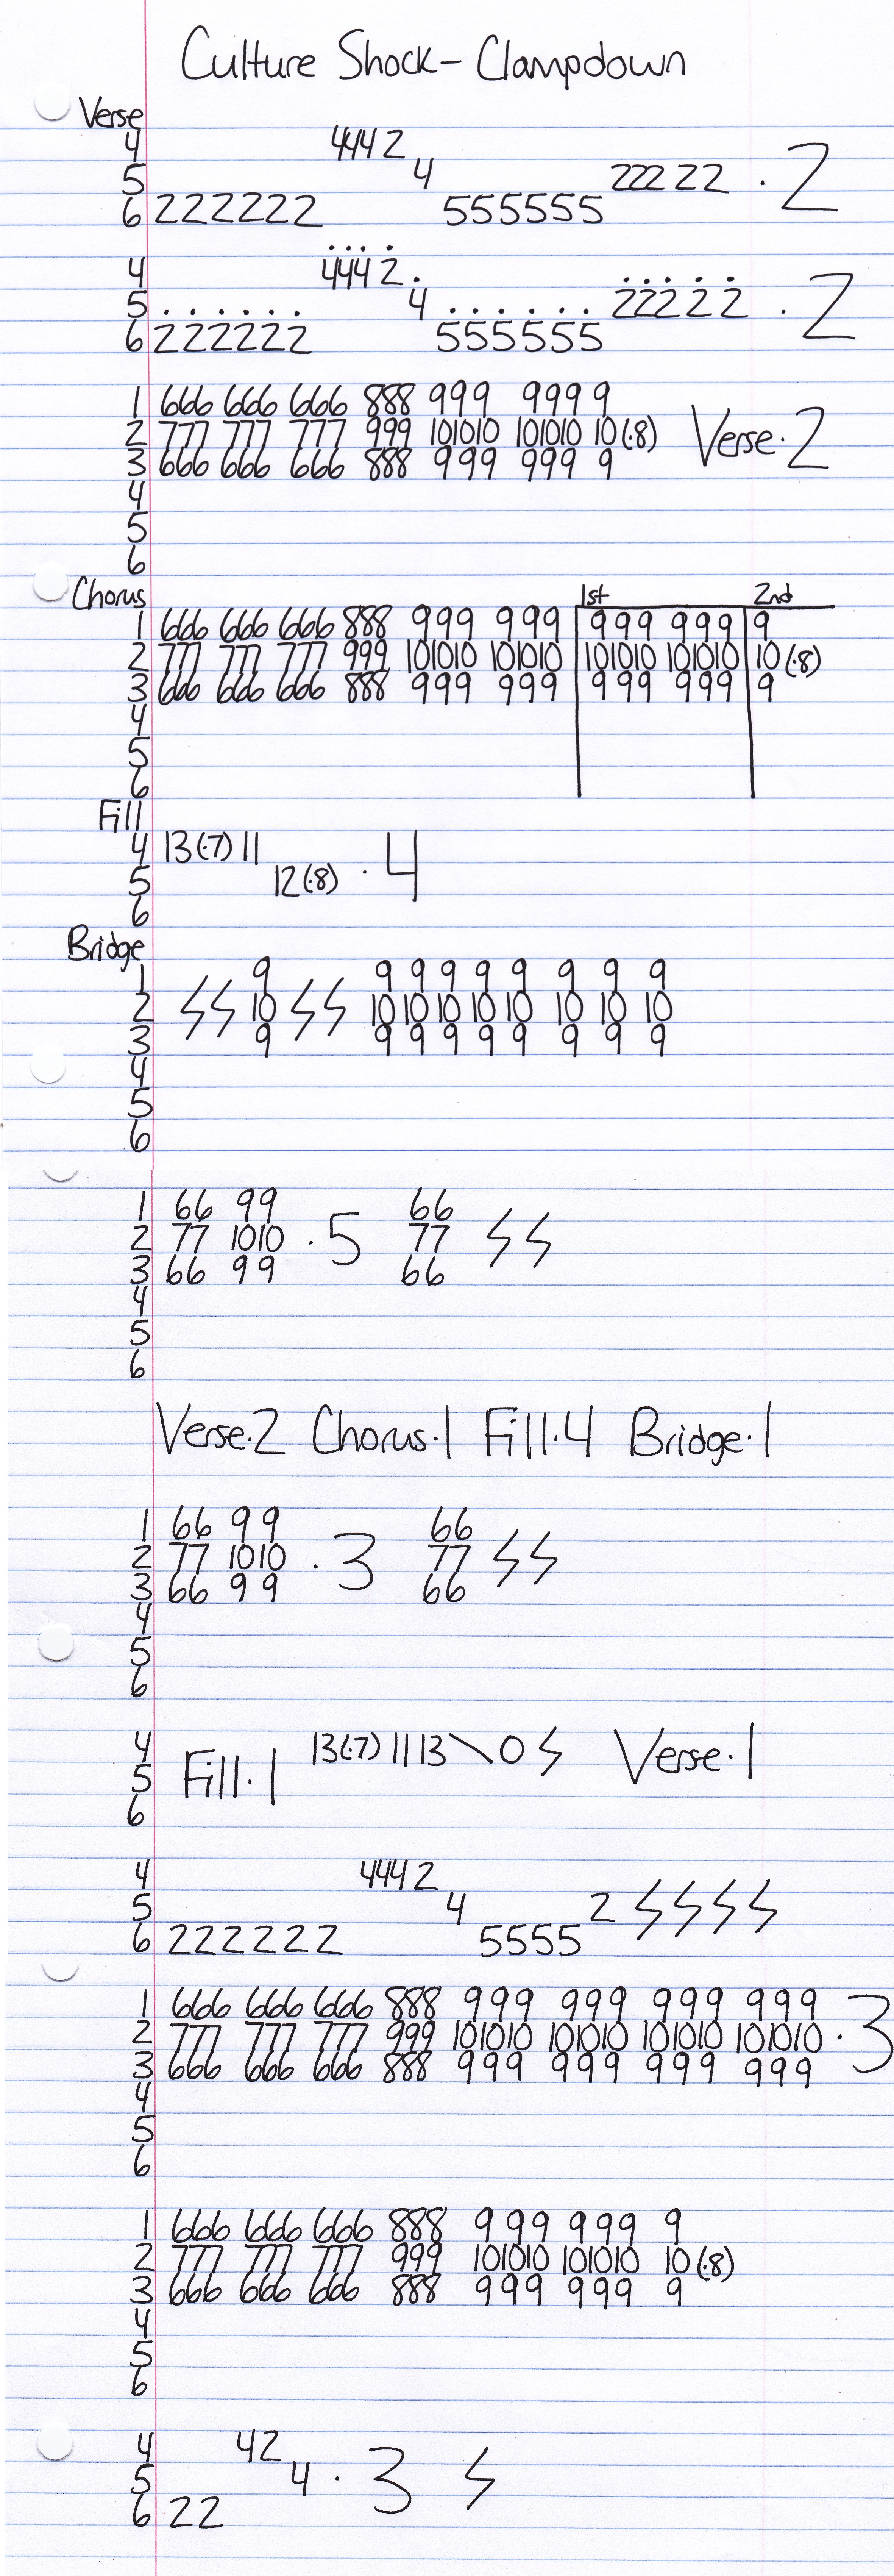 Culture Shock - Clampdown
Verse
4 4442
5 4 22222 · 2
6 222222 555555
4 4442
5 4 22222 · 2
6 222222 555555
1 666 666 666 888 999 9999
2 777 777 777 999 101010 101010 10(·8) Verse·2
3 666 666 666 888 999 999 9
4
5
6
Chorus 1st 2nd
1 666 666 666 888 999 999 999 999 9
2 777 777 777 999 101010 101010 101010 101010 10(·8)
3 666 666 666 888 999 999 999 999 9
4
5
6
Fill
4 13(·7) 11
5 12(·8) · 4
6
Bridge
1 9 9 9 9 9 9 9 9 9
2 10 10 10 10 10 10 10 10 10
3 9 9 9 9 9 9 9 9 9
4
5
6
1 66 99 66
2 77 1010 · 5 77
3 66 99 66
4
5
6
Verse·2 Chorus·1 Fill·4 Bridge·1
1 66 99 66
2 77 1010 · 3 77
3 66 99 66
4
5
6
4 13(·7) 11 13\0 Verse·1
5 Fill·1
6
4 4442
5 4 2
6 222222 5555
1 666 666 666 888 999 999 999 999
2 777 777 777 999 101010 101010 101010 101010 · 3
3 666 666 666 888 999 999 999 999
4
5
6
1 666 666 666 888 999 999 9
2 777 777 777 999 101010 101010 10(·8)
3 666 666 666 888 999 999 9
4
5
6
4 42
5 4 · 3
6 22